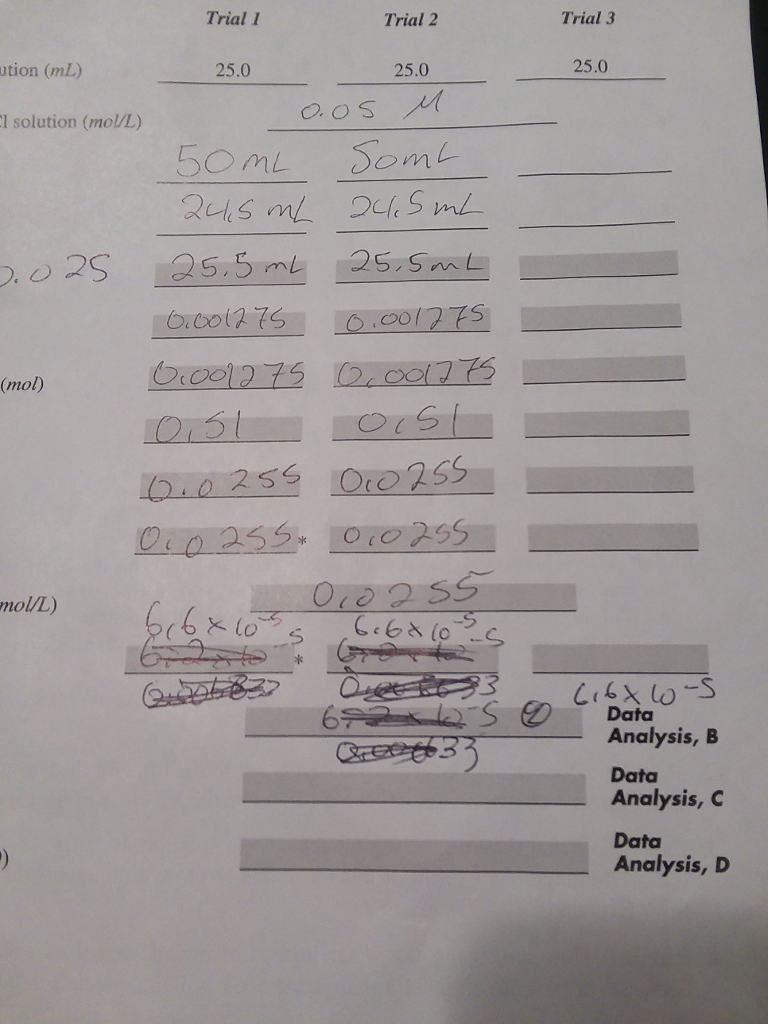 Trial 1 Trial 2 Trial 3
ution (mL) 25.0 25.0 25.0
Cl solution (mol/L) 0.05 M
50 mL 50 mL
24.5 mL 24.5 mL
0.025 25.5 mL 25.5 mL
0.001275 0.001275
(mol) 0.001275 0.001275
0.51 0.51
0.0255 0.0255
0.0255 * 0.0255
mol/L) 0.0255
6.6 x 10-5 6.6 x 10-5
*
6.6 x 10-5
Data
Analysis, B
Data
Analysis, C
Data
) Analysis, D